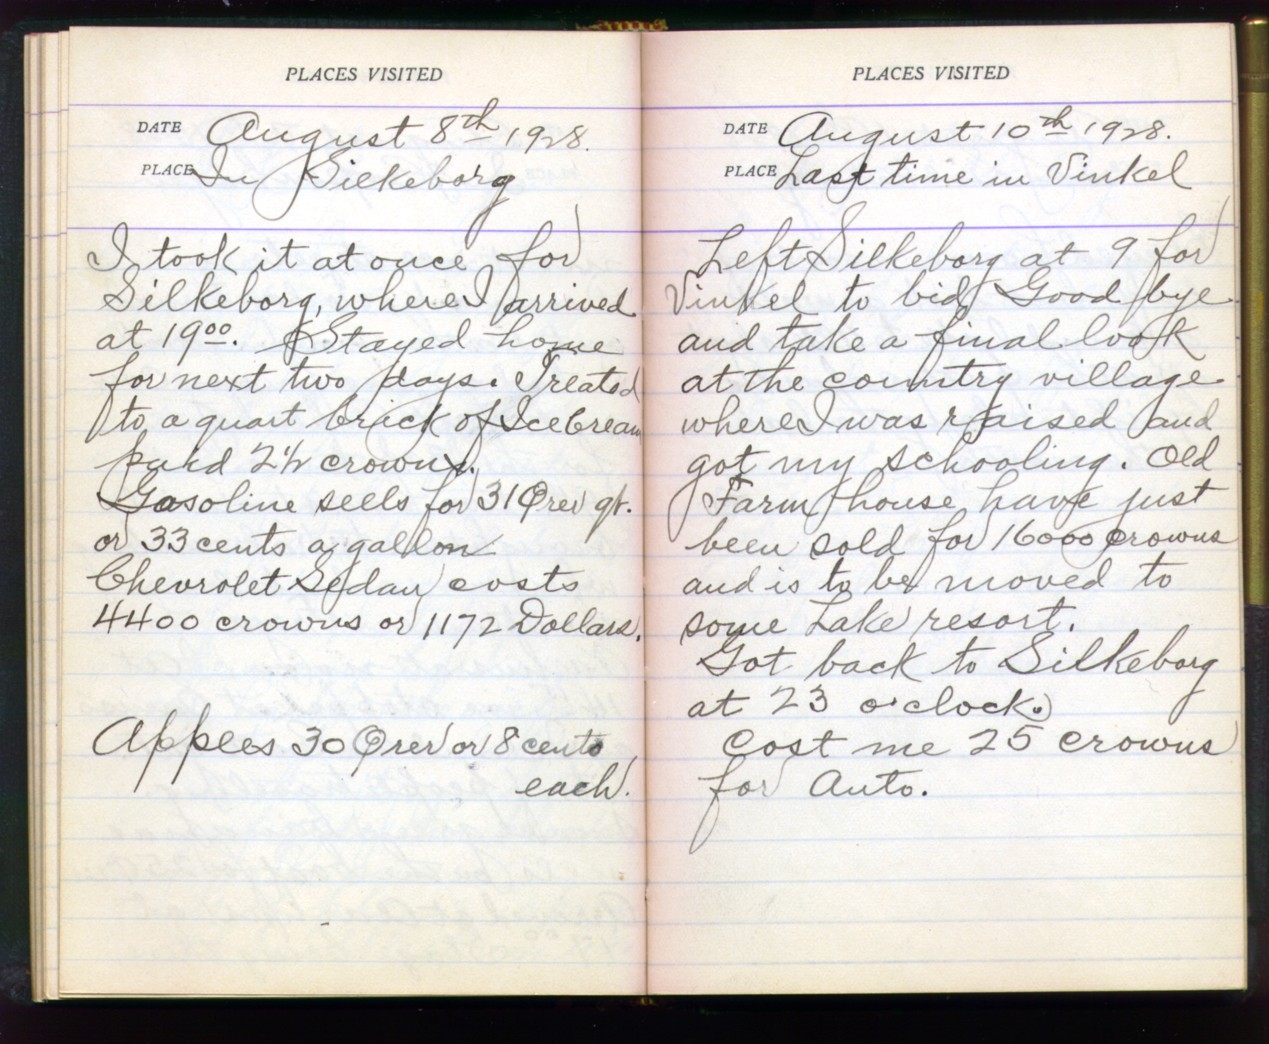 PLACES VISITED
DATE August 8th 1928.
PLACE In Silkeborg
I took it at once for
Silkeborg, where I arrived
at 19 00. Stayed home
for next two days. Treated
to a quart brick of Ice Cream
paid 2 1/2 crowns.
Gasoline sells for 31 Ører qt.
or 33 cents a gallon
Chevrolet Sedan costs
4400 crowns or 1172 Dollars.
Apples 30 Ører or 8 cents
each.
PLACES VISITED
DATE August 10th 1928.
PLACE Last time in Vinkel
Left Silkeborg at 9 for
Vinkel to bid Good bye
and take a final look
at the country village
where I was raised and
got my schooling. Old
Farm house have just
been sold for 16000 crowns
and is to be moved to
some Lake resort.
Got back to Silkeborg
at 23 o'clock.
Cost me 25 crowns
for Auto.